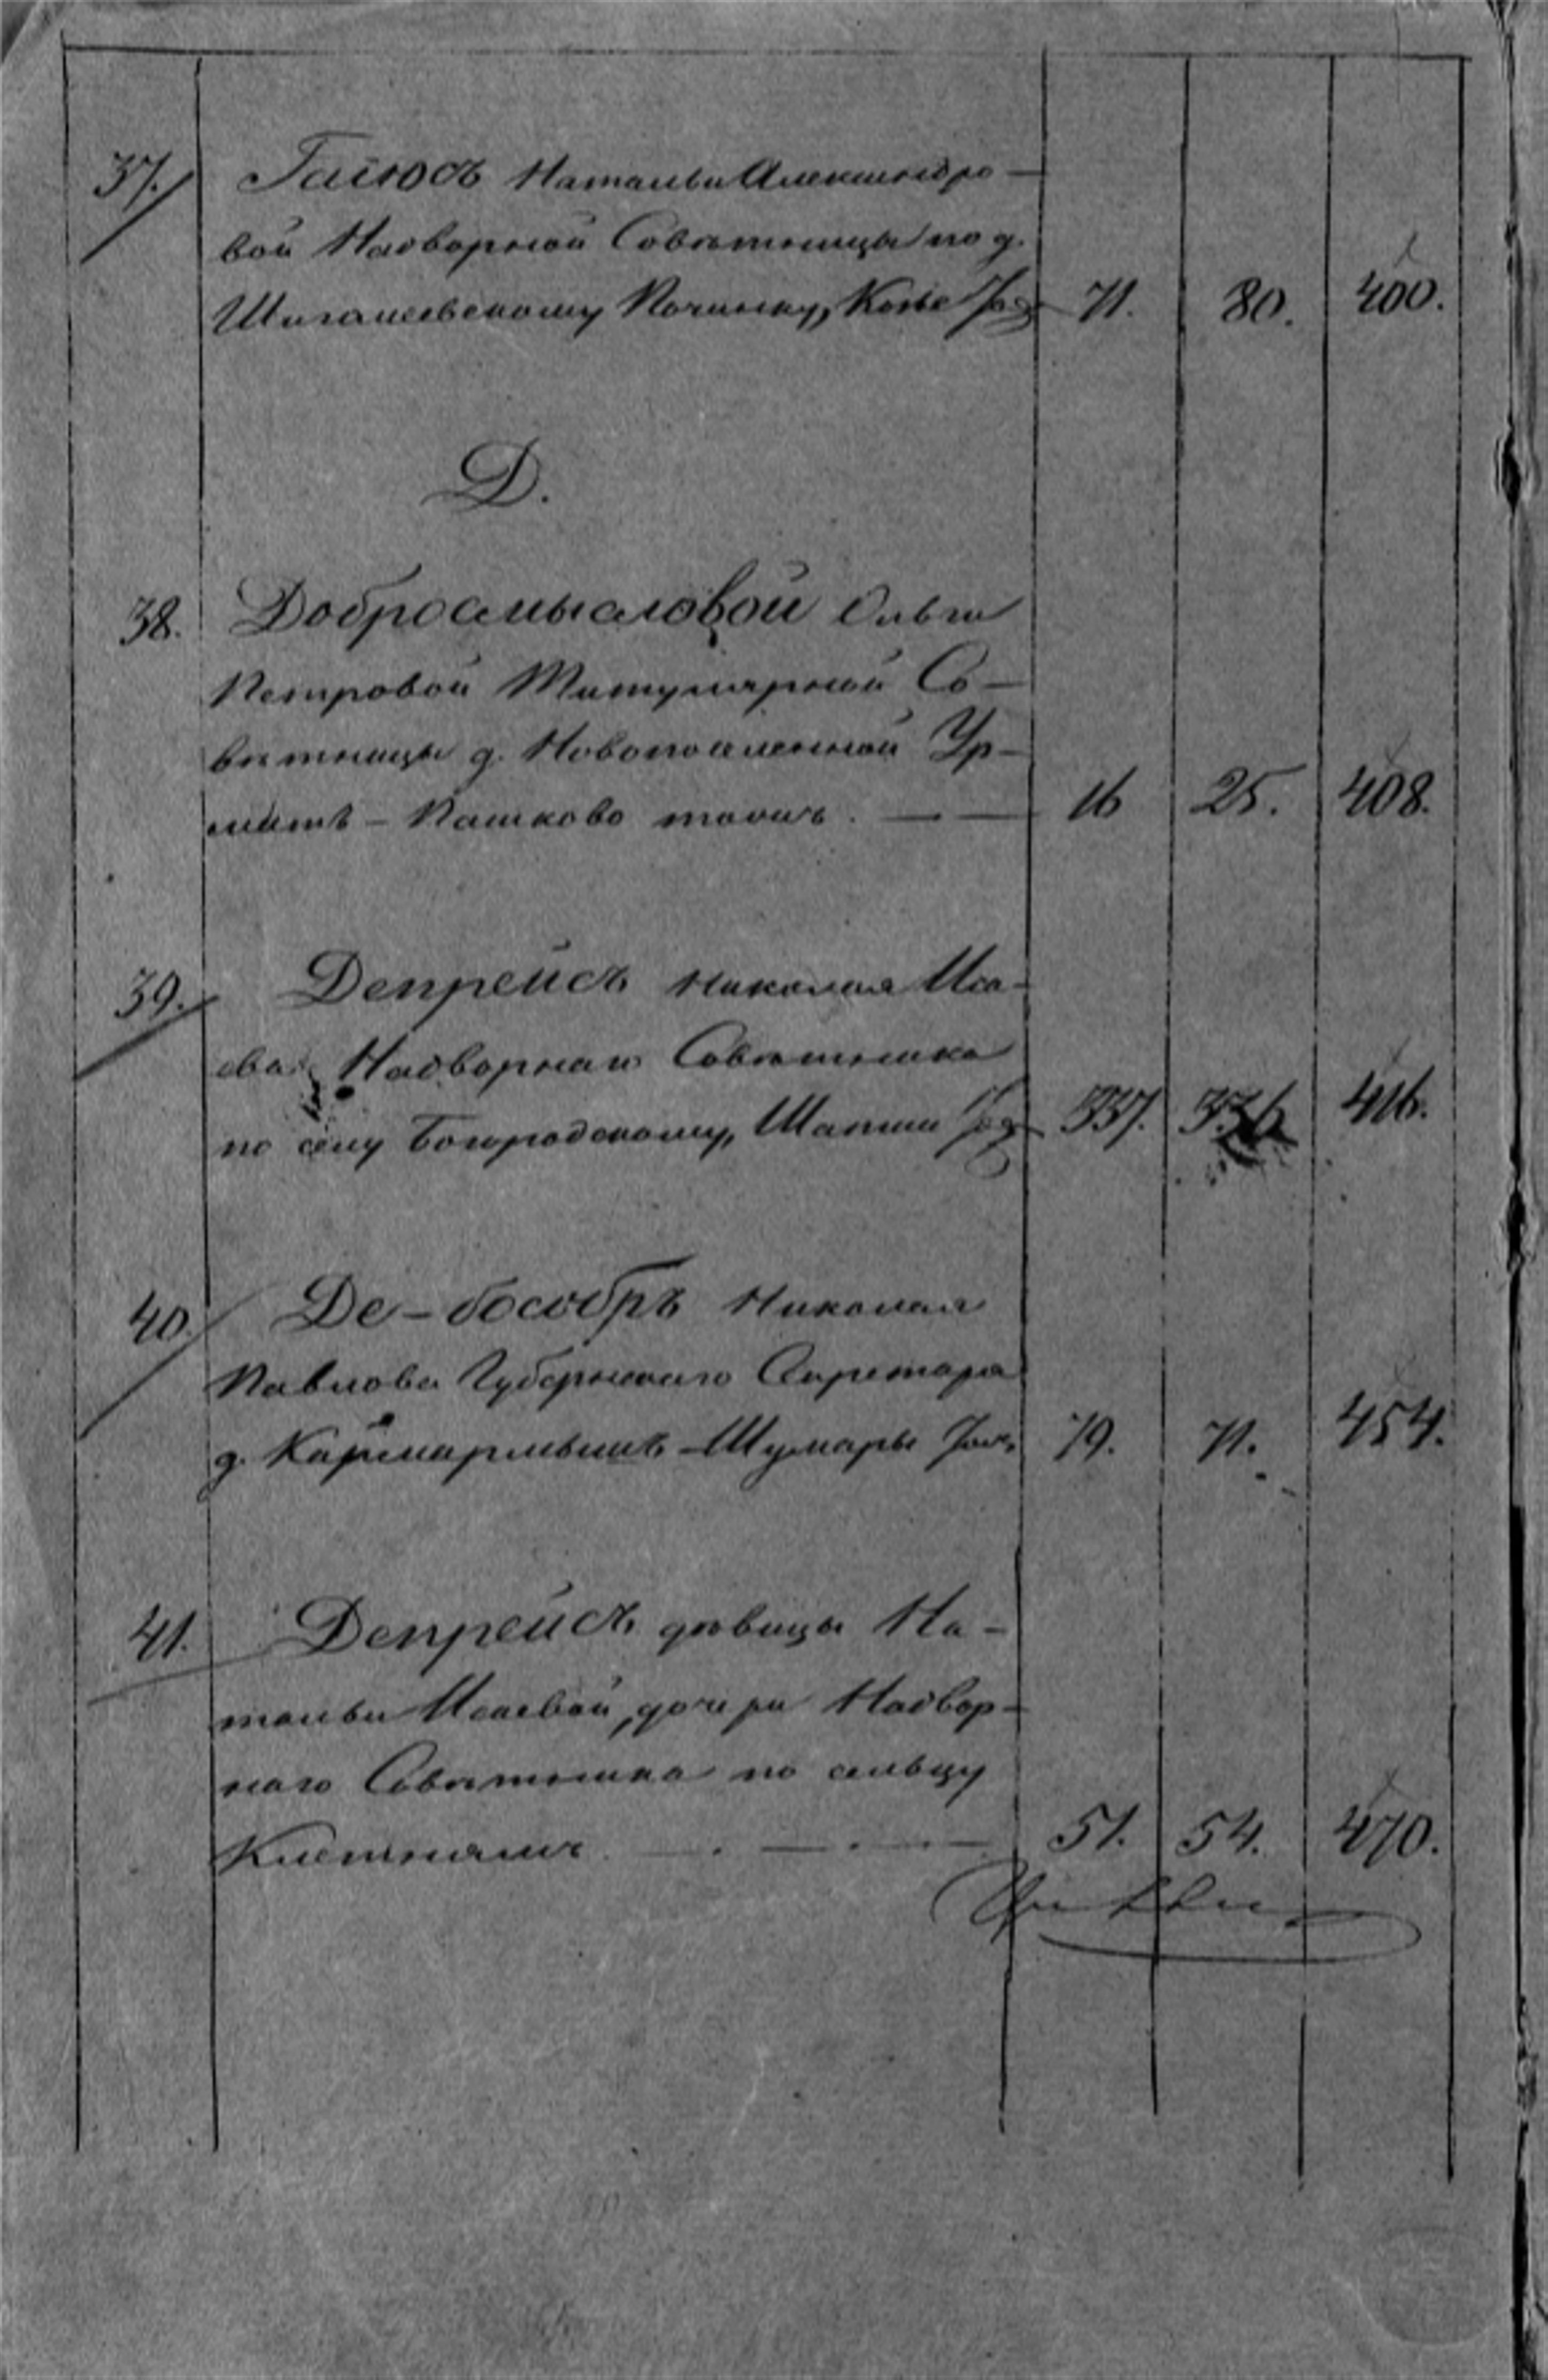 37. Гаиюсъ Натальи Александро—
вой Надворной Совѣтницы по д.
Шигалеевскому Починку, Колье тож 71. 80. 400.
Д.
38. Добросмысловой Ольги
Петровой Титулярной Со—
вѣтницы д. Новопоселенной Ур—
Пашково тожъ. 16 25. 408.
39. Депрейсъ Николая Иса—
ева Надворнаго Совѣтника
по селу Богородскому, Шапши тож 337. 336 416.
40. Де-бособръ Николая
Павлова Губернскаго Секретаря
д. Шумары тож, 79. 71. 454.
41. Депрейсъ дѣвицы На—
тальи Исаевой, дочери Надвор—
наго Совѣтника по сельцу
51. 54. 470.